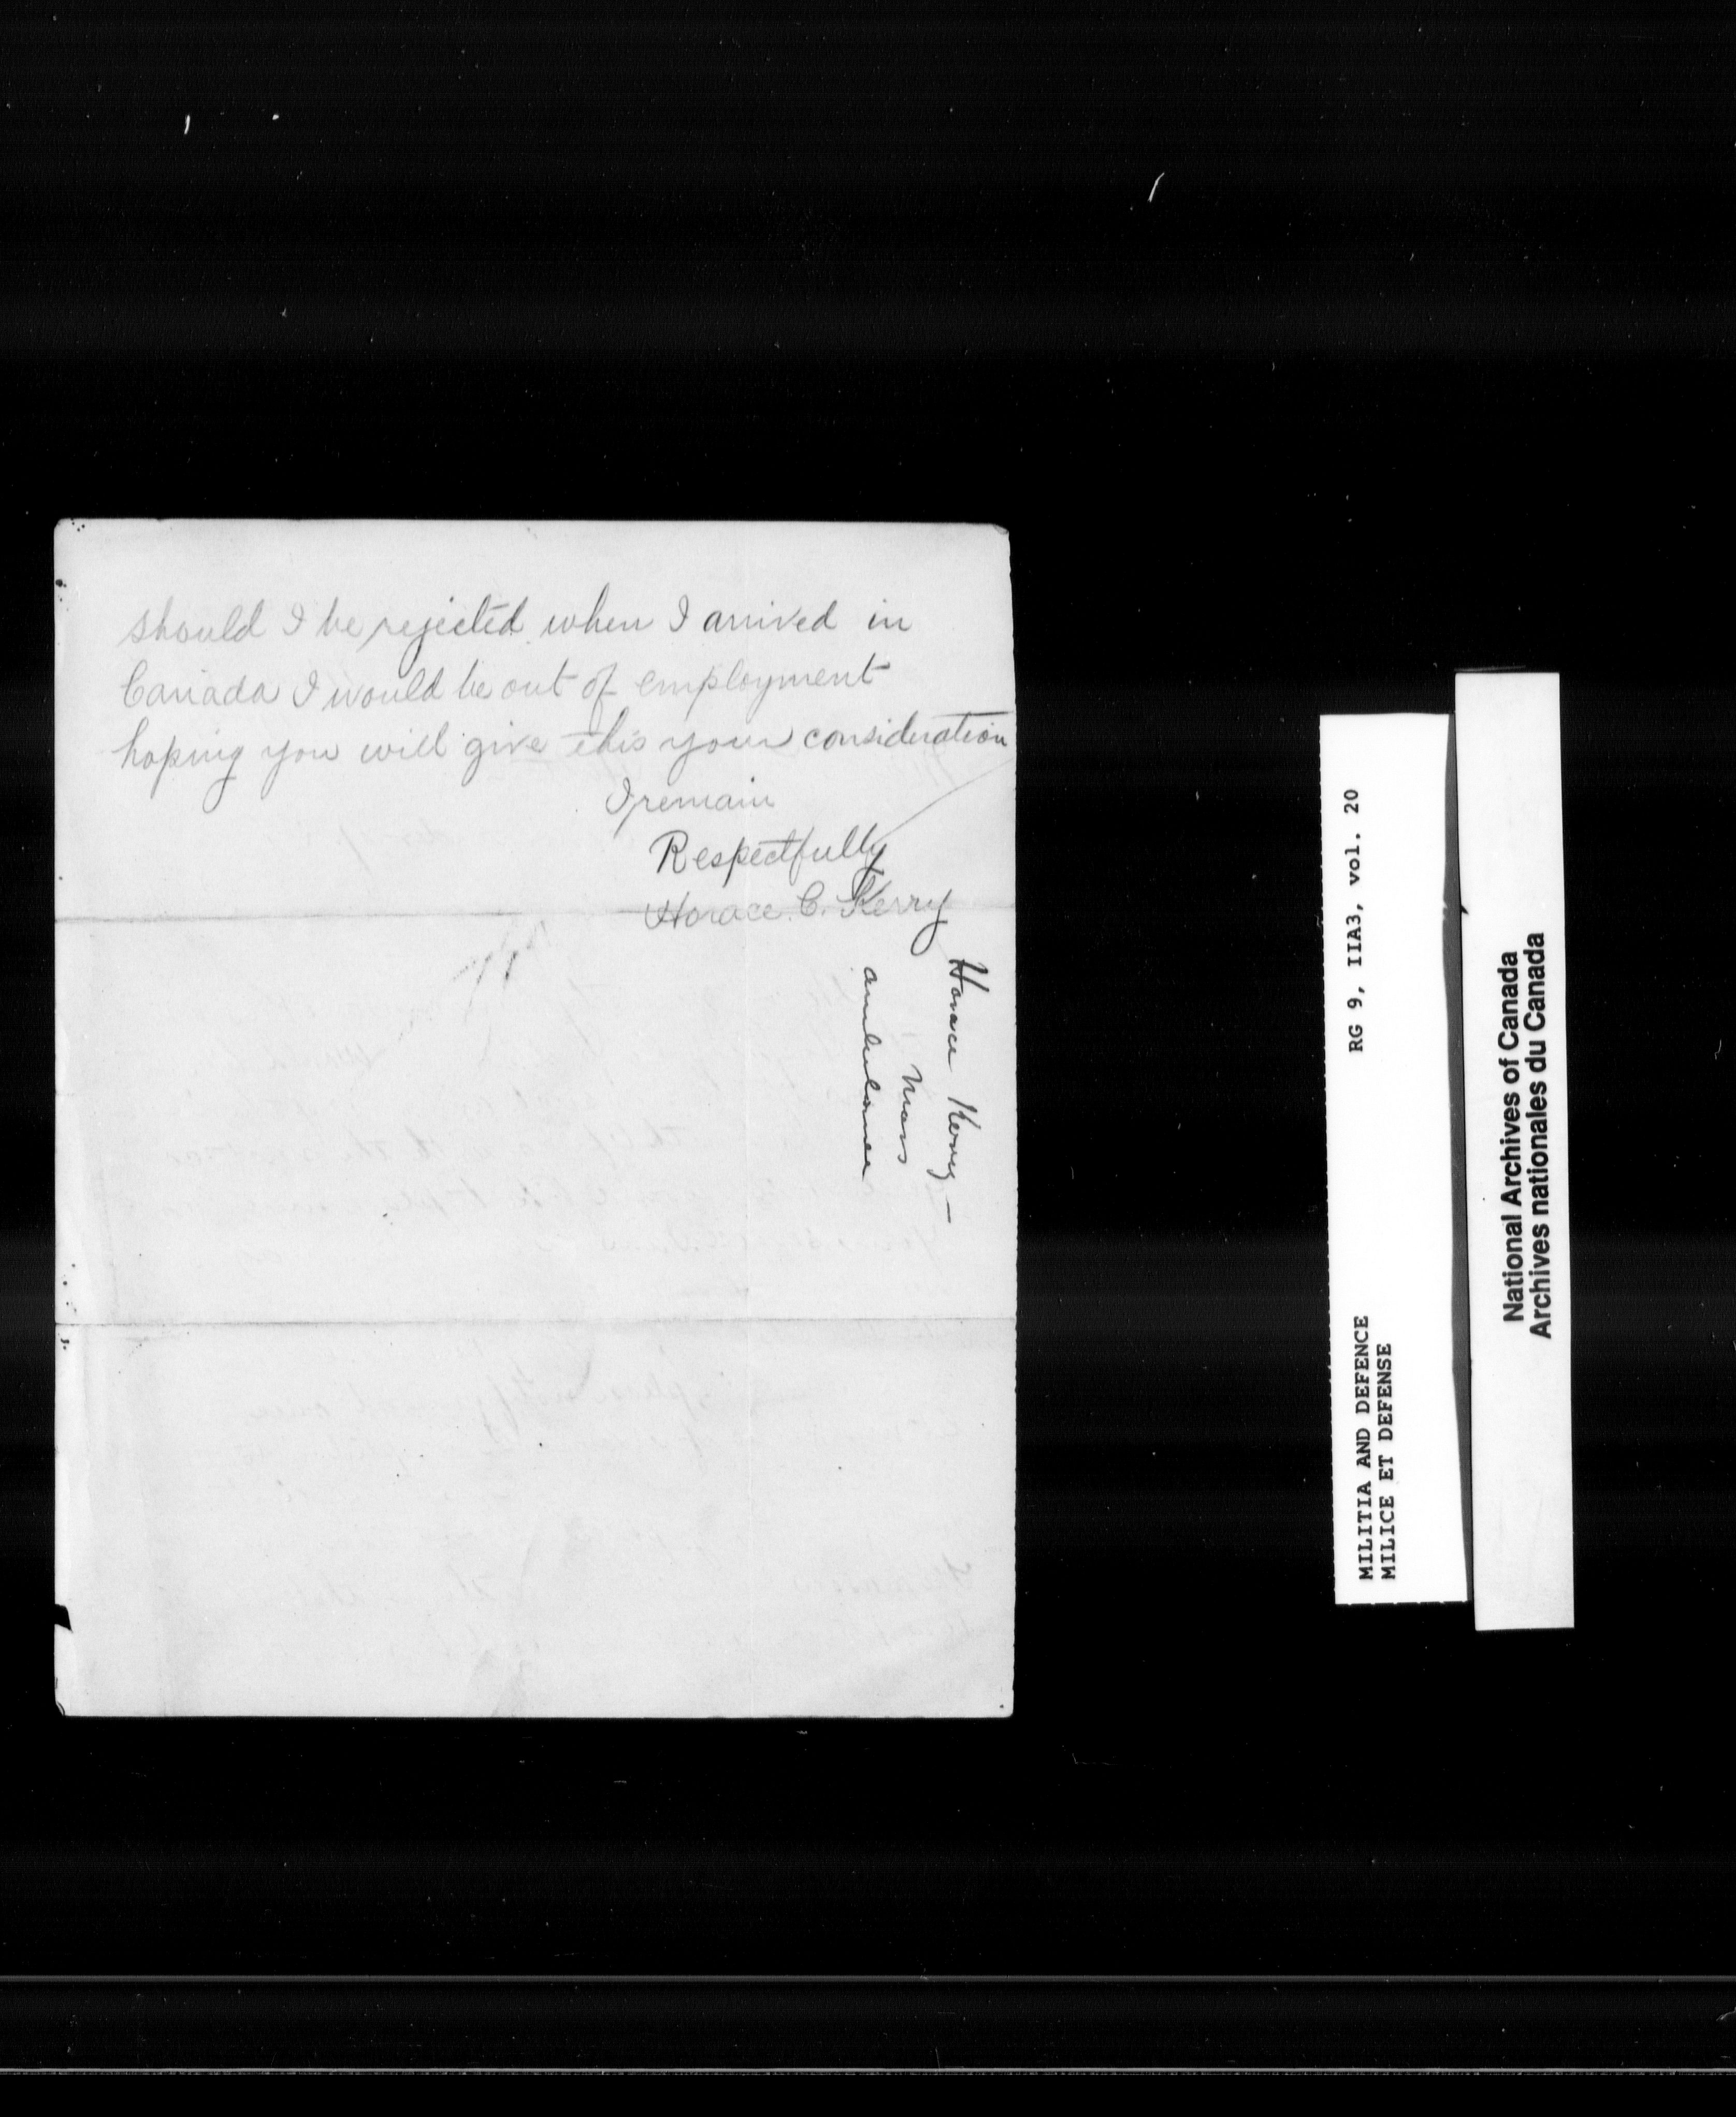 should I be rejected when I arrived in
Canada I would be out of employment
hoping you will give this your consideration
I remain
Respectfully
Horace C. Kerry
Horace Kerry –
Mass
RG 9, IIA3, vol. 20
MILITIA AND DEFENCE
MILICE ET DEFENSE
National Archives of Canada
Archives nationales du Canada